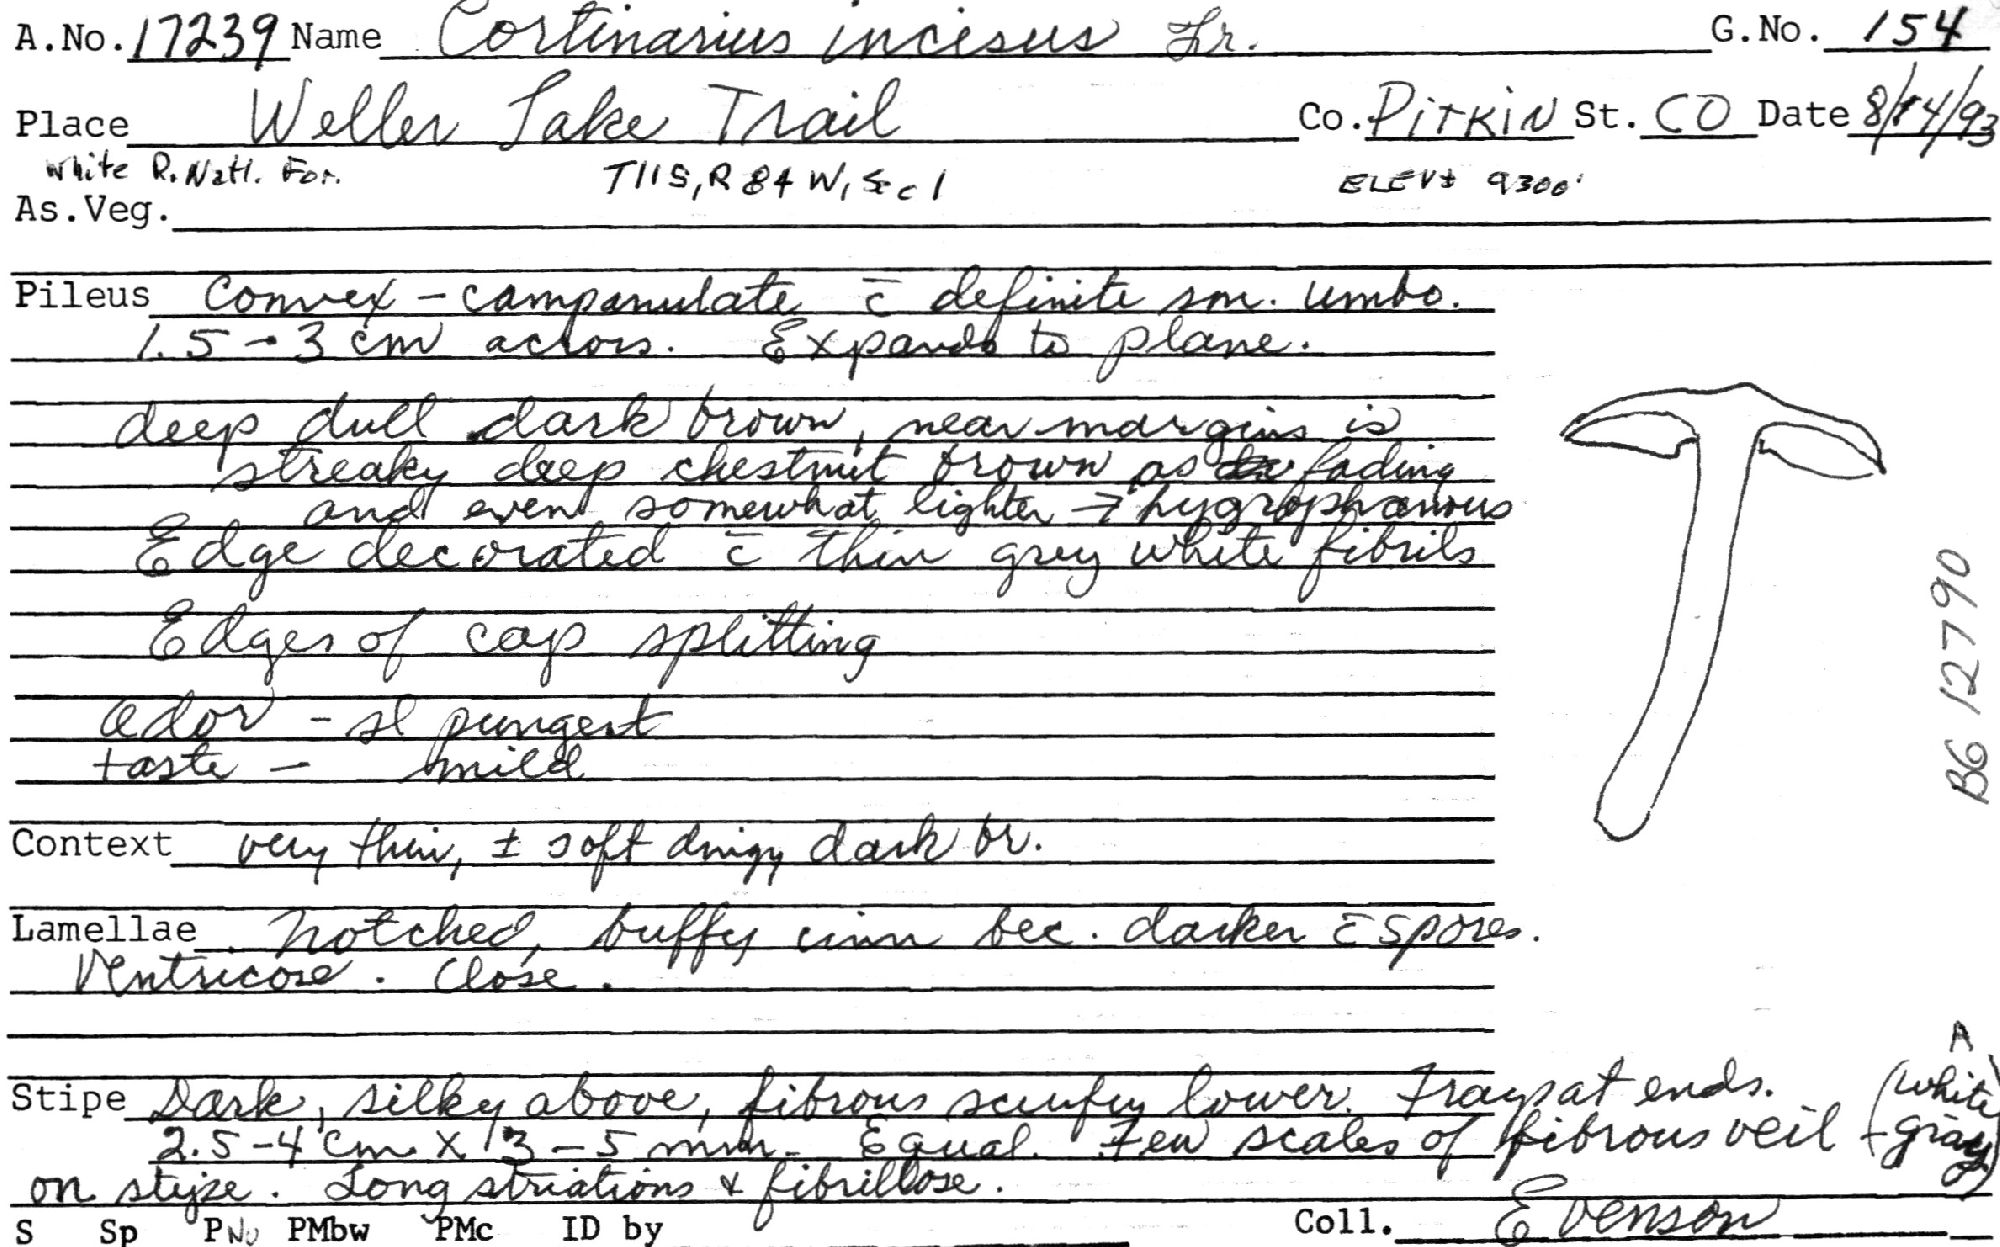 A.No. 17239 Name Cortinarius incisus Fr. G.No. 154
Place Weller Lake Trail Co. Pitkin St. CO Date 8/14/93
White R. Natl. For. T11S, R84W, Sec 1 ELEV± 9300'
As.Veg.
Pileus Convex - campanulate c̄ definite sm. umbo.
1.5 - 3 cm across. Expands to plane.
deep dull dark brown, near margins is
streaky deep chestnut brown as fading
and even somewhat lighter → hygrophanous
Edge decorated c̄ thin grey white fibrils
Edges of cap splitting
Odor - sl pungent
taste - mild
Context very thin, ± soft dingy dark br.
Lamellae notched, buffy cinn bec. darker c̄ spores.
Ventricose. Close.
Stipe Dark, silky above, fibrous scurfy lower. Frays at ends.
2.5-4 cm x 3-5 mm. Equal. Few scales of fibrous veil (white - gray)
on stipe. Long striations & fibrillose.
S Sp PNu PMbw PMc ID by Coll. Evenson
BG 12790
A